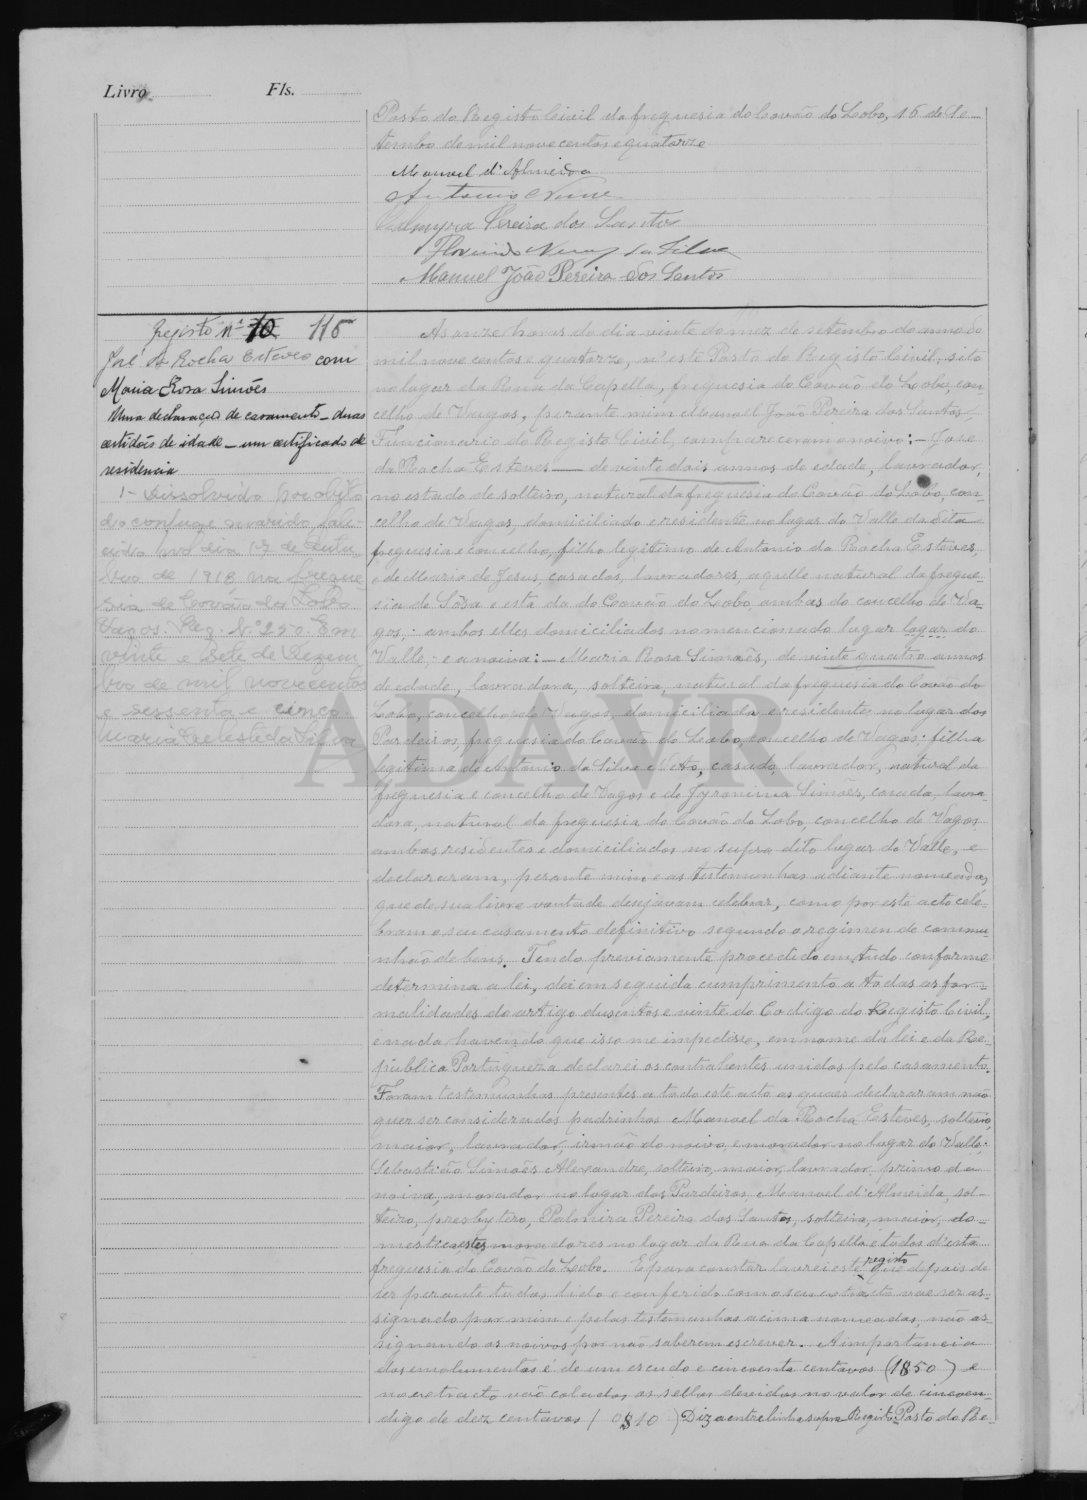 Livro Fls.
Posto do Registo Civil da freguesia do Covão do Lobo, 16 de Se-
tembro de mil nove centos e quatorze
Manuel d'Almeida
Antonio Nune
Palmyra Pereira dos Santos
Florindo Nunes da Silva
Manuel João Pereira dos Santos
Registo Nº 10 115
José da Rocha Esteves com
Maria Rosa Simões
Uma declaração de casamento - duas
certidões de idade - um certificado de
residencia
1- Dissolvido por obito
do conjuge marido, fale-
cido no dia 17 de Outu-
bro de 1918 na fregue-
sia de Covão do Lobo
Vagos. Reg. Nº 250. Em
vinte e sete de Dezem-
bro de mil novecentos
e sessenta e cinco
Maria Celeste da Silva
As onze horas do dia vinte do mez de setembro do anno de
mil nove centos e quatorze, n'este Posto do Registo Civil, sito
no lugar da Rua da Capella, freguesia do Covão do Lobo, con-
celho de Vagos, perante mim Manoel João Pereira dos Santos,
Funcionario do Registo Civil, compareceram o noivo: - José
da Rocha Esteves — de vinte dois annos de edade, lavrador,
no estado de solteiro, natural da freguesia do Covão do Lobo, con-
celho de Vagos, domiciliado e residente no lugar do Valle da dita
freguesia e concelho, filho legitimo de Antonio da Rocha Esteves,
e de Maria de Jesus, casados, lavradores, aquelle natural da fregue-
sia de Sôsa e esta da do Covão do Lobo, ambas do concelho de Va-
gos,: ambos elles domiciliados no mencionado lugar lugar do
Valle,: e a noiva: - Maria Rosa Simões, de vinte quatro annos
de edade, lavradora, solteira, natural da freguesia do Covão do
Lobo, concelho de Vagos, domiciliada e residente no lugar dos
Pardeiros, freguesia do Covão do Lobo, concelho de Vagos; filha
legitima de Antonio da Silva Neto, casado, lavrador, natural da
freguesia e concelho de Vagos e de Jyronima Simões, casada, lavra-
dora, natural da freguesia do Covão do Lobo, concelho de Vagos,
ambos residentes e domiciliados no supra dito lugar do Valle, e
declararam, perante mim e as testemunhas adiante nomeadas,
que de sua livre vontade desejavam celebrar, como por este acto cele-
bram o seu casamento definitivo segundo o regimen de commu-
nhão de bens. Tendo previamente procedido em tudo conforme
determina a lei, dei em seguida cumprimento a todas as for-
malidades do artigo dusentos e vinte do Codigo do Registo Civil,
e nada havendo que isso me impedisse, em nome da lei e da Re-
pública Portugueza declarei os contrahentes unidos pelo casamento.
Foram testemunhas presentes a todo este acto as quaes declararam não
querser considerados padrinhos Manoel da Rocha Esteves, solteiro,
maior, lavrador, irmão do noivo, e morador no lugar do Valle;
Sebastião Simões Alexandre, solteiro, maior, lavrador, primo da
noiva, morador no lugar dos Pardeiros, Manoel d'Almeida, sol-
teiro, presbytero, Palmira Pereira dos Santos, solteira, maior, do-
mestica estes moradores no lugar da Rua da Capella e todos d'esta
freguesia do Covão do Lobo. E para constar lavrei este registo que depois de
ser perante todos lido e conferido com o seu extracto vae ser as-
signado por mim e pelas testemunhas acima nomeadas, não as-
signando os noivos por não saberem escrever. A importancia
dos emolumentos é de um escudo e cincoenta centavos (1$50) e
no extracto vão colados, os sellos devidos no valor de
digo de dez centavos (0$10) Diz a entrelinha supra Registo Posto do Re-
ADAVR